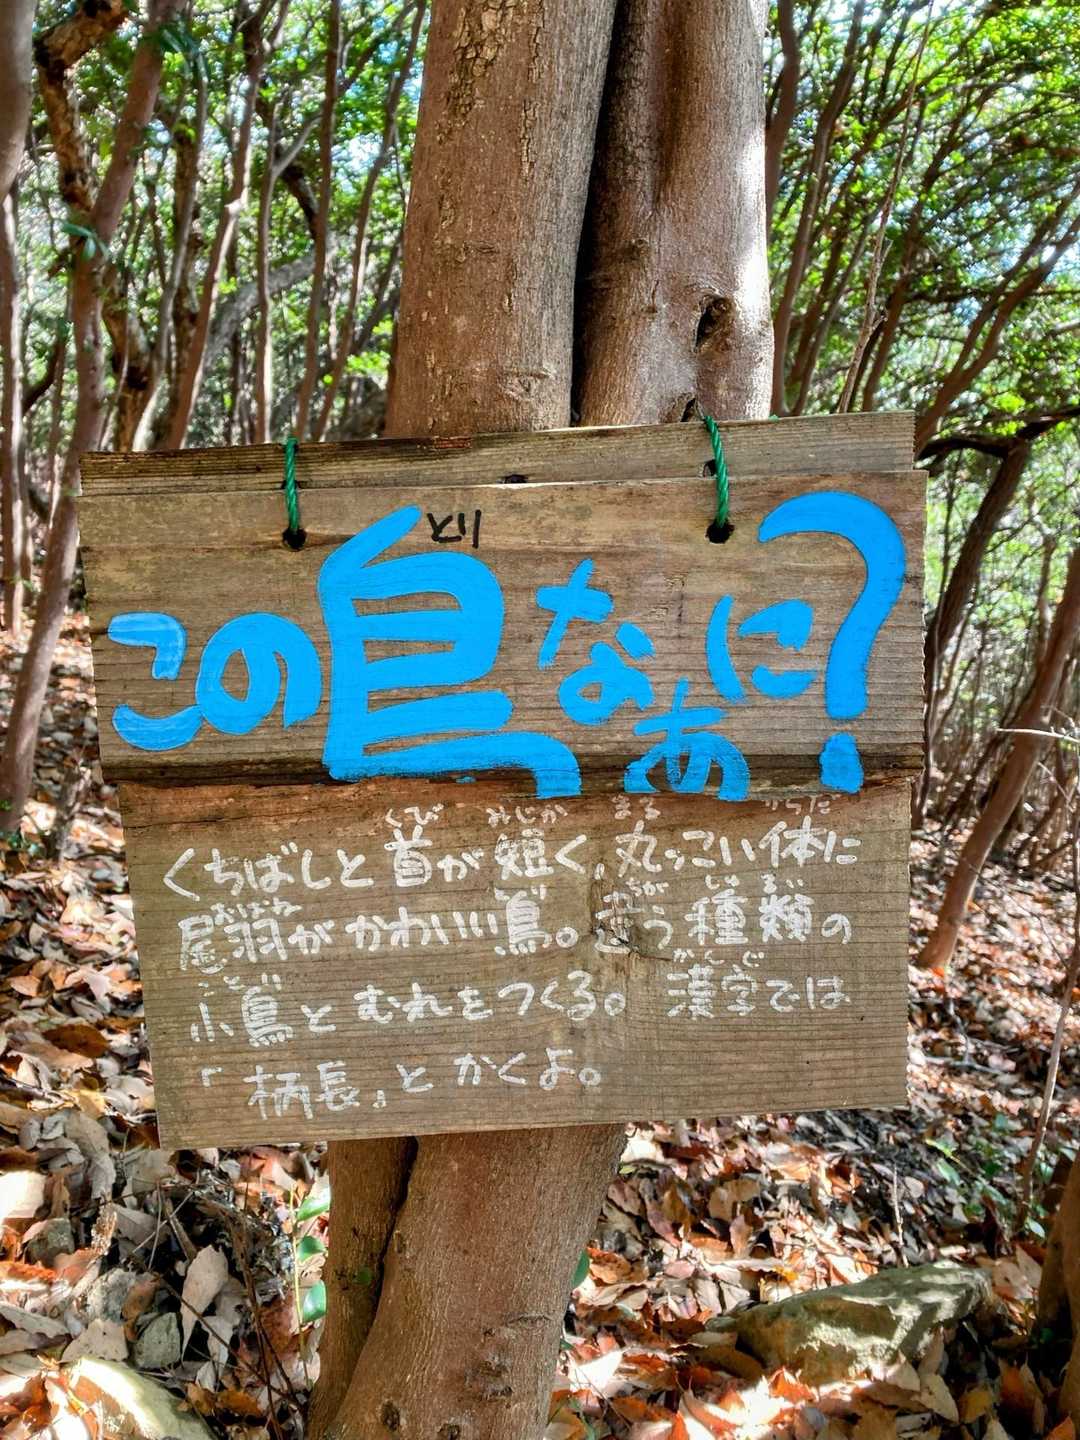 とり
この鳥なぁに?
くび みじか まる からだ
くちばしと首が短く、丸っこい体に
おばね とり ちが しゅ るい
尾羽がかわいい鳥。違う種類の
ことり かんじ
小鳥とむれをつくる。漢字では
「柄長」とかくよ。